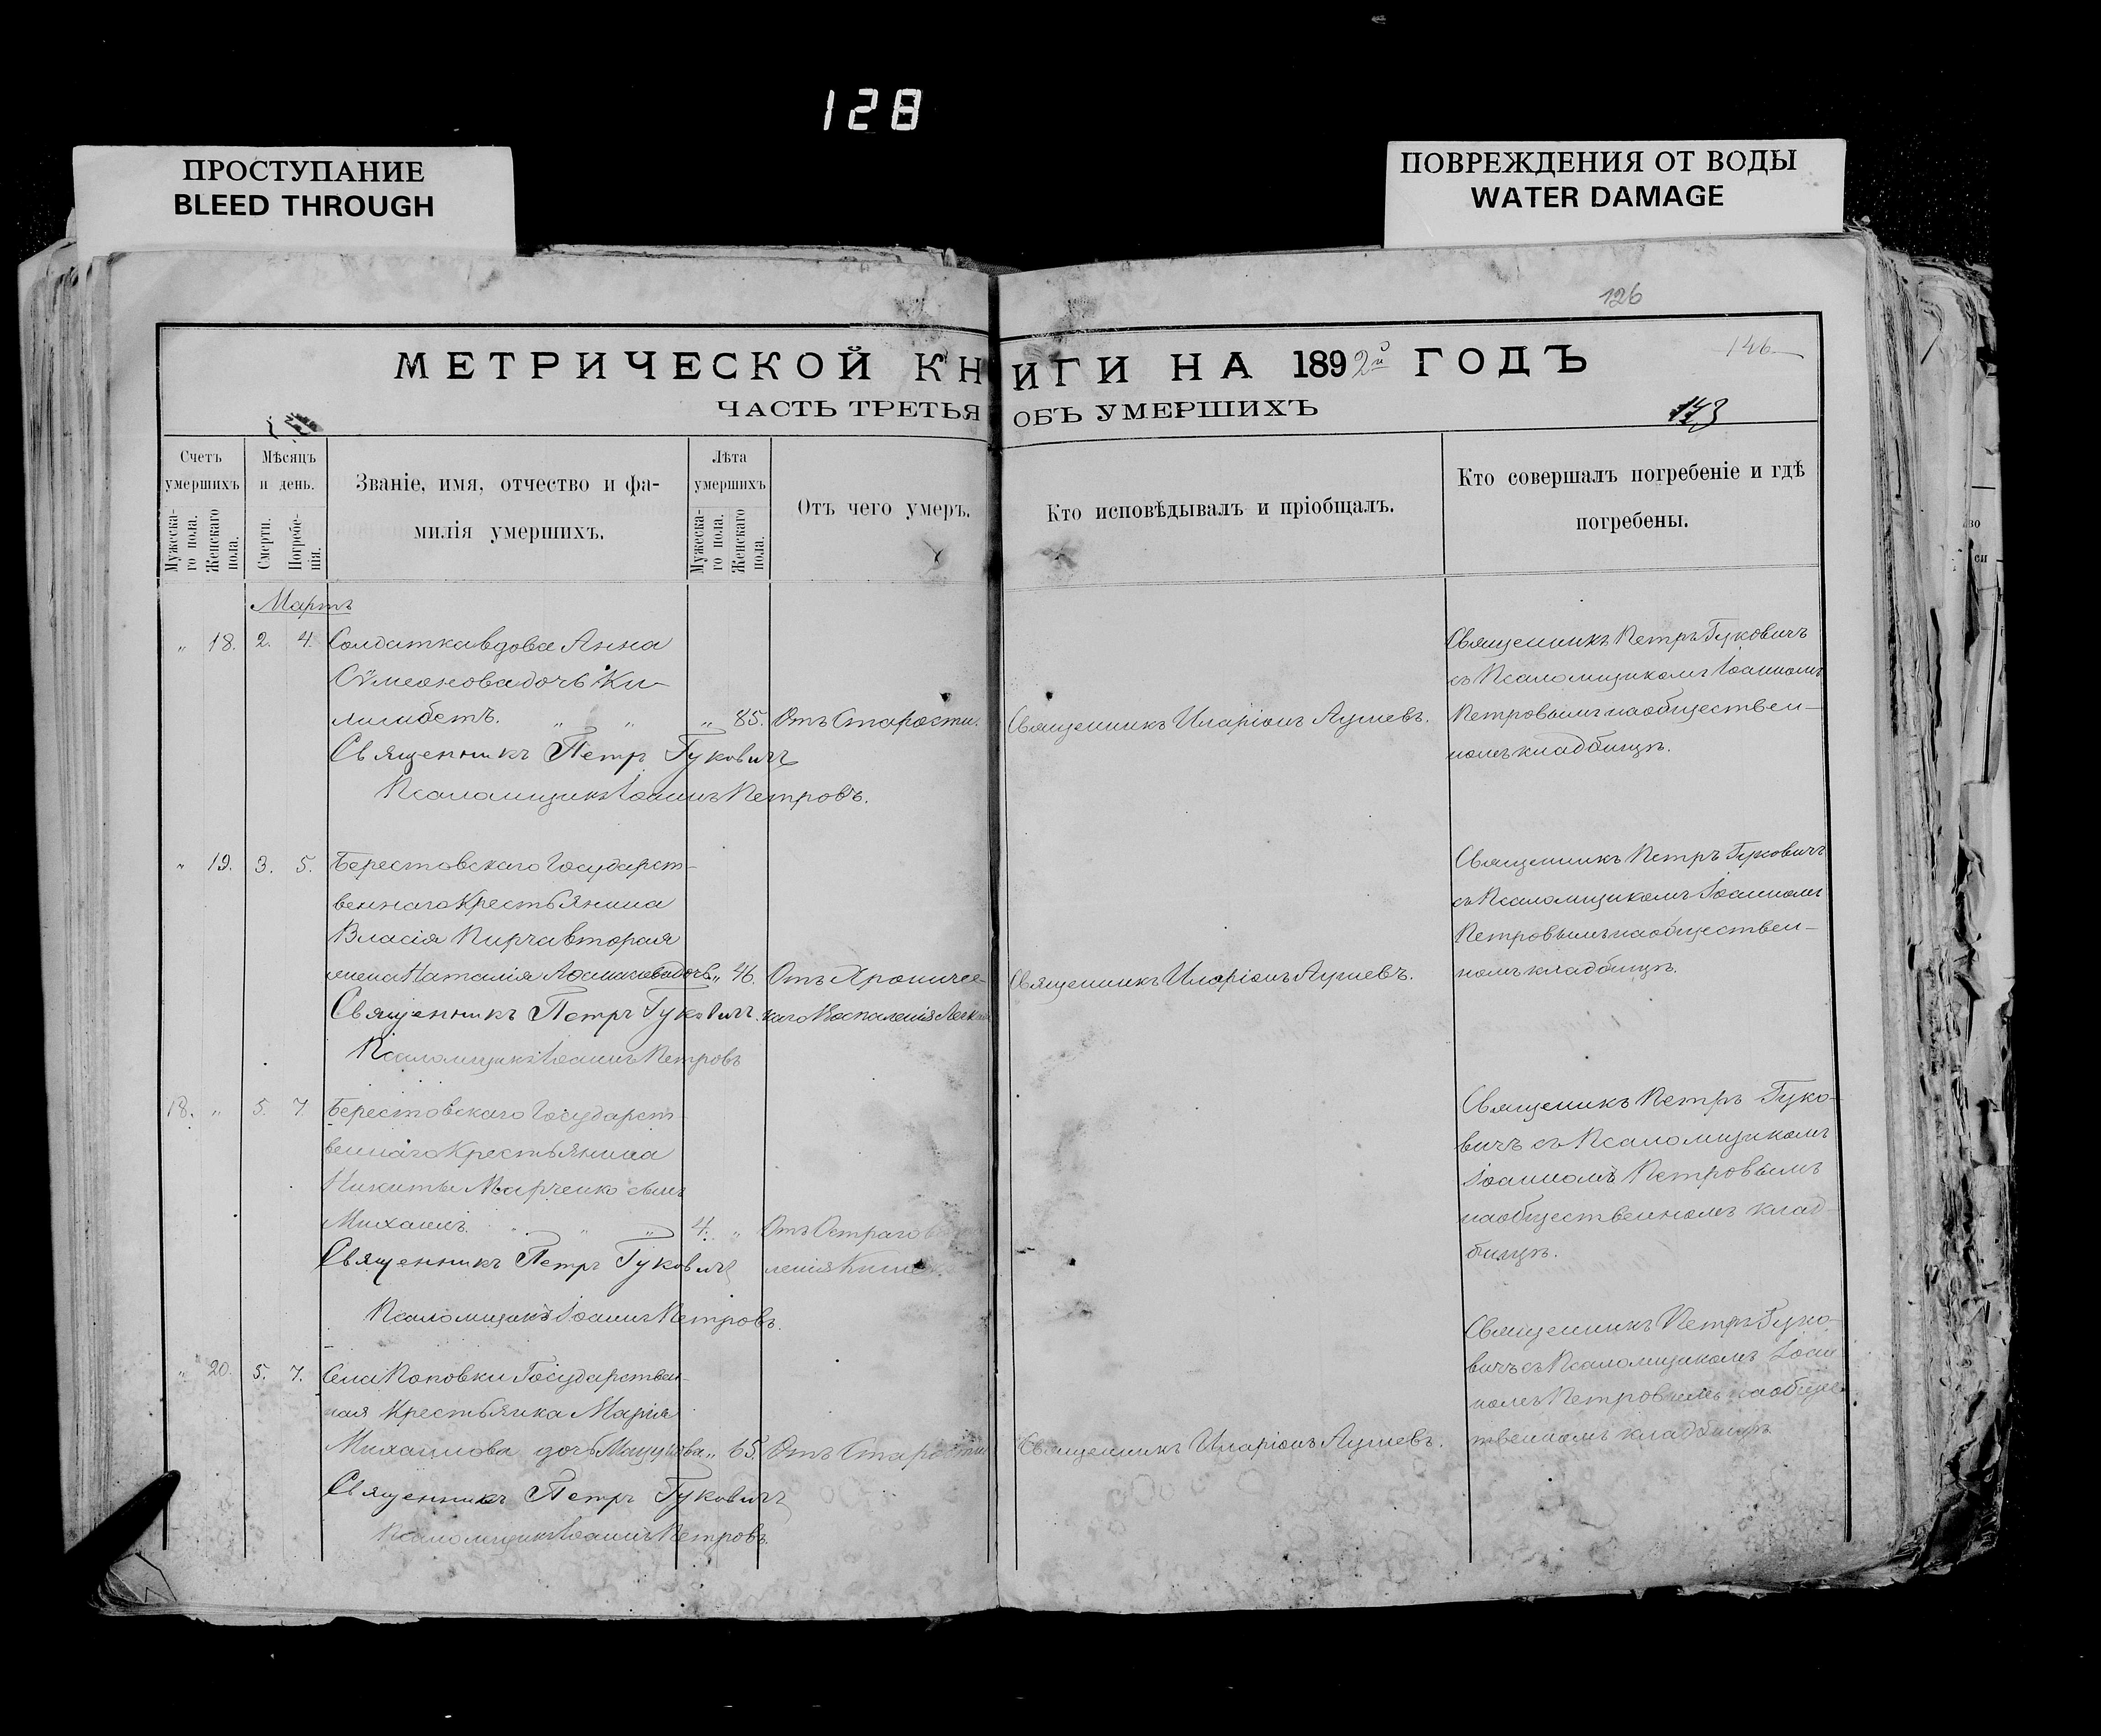 128
ПРОСТУПАНИЕ
BLEED THROUGH
ПОВРЕЖДЕНИЯ ОТ ВОДЫ
WATER DAMAGE
126
146
МЕТРИЧЕСКОЙ КНИГИ НА 1892й ГОДЪ
ЧАСТЬ ТРЕТЬЯ ОБЪ УМЕРШИХЪ
Счетъ умершихъ
Мужеска-го пола.
Женскаго пола.
Мѣсяцъ и день.
Смерти.
Погребе-нія.
Званіе, имя, отчество и фа-
милія умершихъ.
Лѣта умершихъ
Мужеска-го пола.
Женскаго пола.
Отъ чего умеръ.
Кто исповѣдывалъ и пріобщалъ.
Кто совершалъ погребеніе и гдѣ
погребены.
Мартъ
„ 18. 2. 4. Солдатка вдова Анна
Сѵмеонова дочь Ки-
лимбетъ. „ „ „ 85. Отъ Старости. Священникъ Иларіонъ
Священникъ Петръ Гуковичъ
Псаломщикъ Іоаннъ Петровъ.
Священникъ Петръ Гуковичъ
съ Псаломщикомъ Іоанномъ
Петровымъ на обществен-
номъ кладбищѣ.
„ 19. 3. 5. Берестовскаго Государст-
веннаго Крестьянина
Власія Кирча вторая
жена Наталія дочь „ 46. Отъ Хрониче- Священникъ Иларіонъ
Священникъ Петръ Гуковичъ. каго Воспаленія
Псаломщикъ Іоаннъ Петровъ
Священникъ Петръ Гуковичъ
съ Псаломщикомъ Іоанномъ
Петровымъ на обществен-
номъ кладбищѣ.
18. „ 5. 7. Берестовскаго Государст-
веннаго Крестьянина
Никиты Марченко сынъ
Михаилъ. „ „ „ 4. „ Отъ Остраго
Священникъ Петръ Гуковичъ ленія
Псаломщикъ Іоаннъ Петровъ.
Священникъ Петръ Гуко-
вичъ съ Псаломщикомъ
Іоанномъ Петровымъ
на общественномъ клад-
бищѣ.
„ 20. 5. 7. Села Поповки Государствен-
ная Крестьянка Марія
Михаилова дочь „ 65. Отъ Старости Священникъ Иларіонъ
Священникъ Петръ Гуковичъ
Псаломщикъ Іоаннъ Петровъ.
Священникъ Петръ Гуко-
вичъ съ Псаломщикомъ Іоан
номъ Петровымъ на общес
твенномъ кладбищѣ